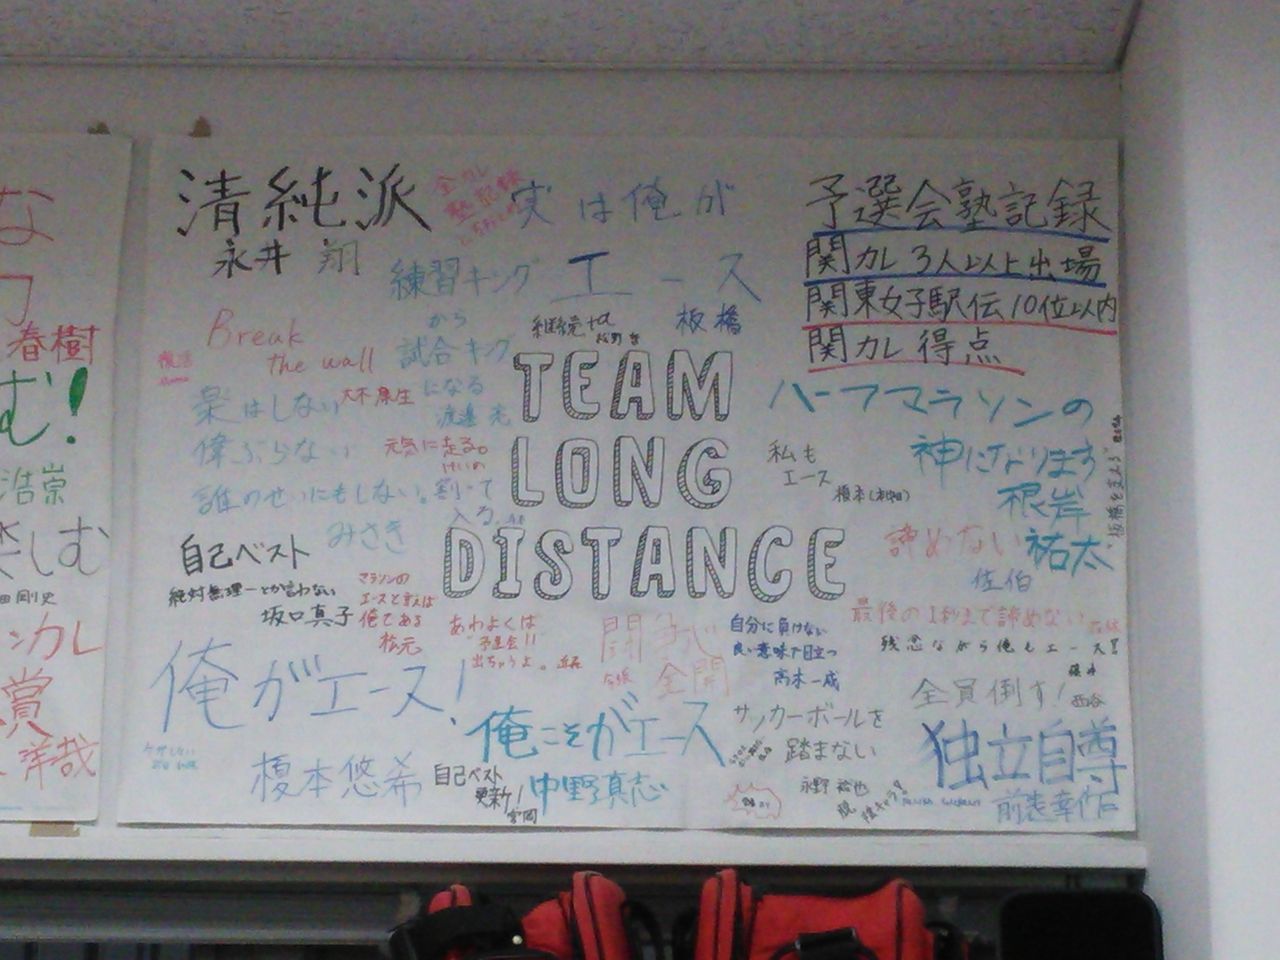 な
春樹
む!
浩崇
楽しむ
田剛史
ンカレ
賞
洋哉
清純派
永井 翔
全カレ
塾記録
実は俺が
エース
板橋
練習キング
から
試合キング
になる
渡邊 光
予選会塾記録
関カレ 3人以上出場
関東女子駅伝10位以内
関カレ得点
Break
the wall
大木康生
復活
継続は力
TEAM
LONG
DISTANCE
驕はしない
偉ぶらない
誰のせいにもしない。
みさき
元気に走る。
けいの
割って
入る。
ハーフマラソンの
神になります
根岸
祐太
私も
エース
板橋を支える
諦めない
佐伯
自己ベスト
絶対無理ーとか言わない
坂口真子
マラソンの
エースと言えば
俺である
松元
あわよくば
"予選会"!!
出ちゃうよ。
闘争心
全開
自分に負けない
良い意味で目立つ
高木一成
最後の1秒まで諦めない
残念ながら俺もエース!!
俺がエース!
榎本悠希
俺こそがエース
中野真志
自己ベスト
更新!
宮岡
サッカーボールを
踏まない
永野 裕也
全員倒す!
西谷
独立自尊
前表幸作